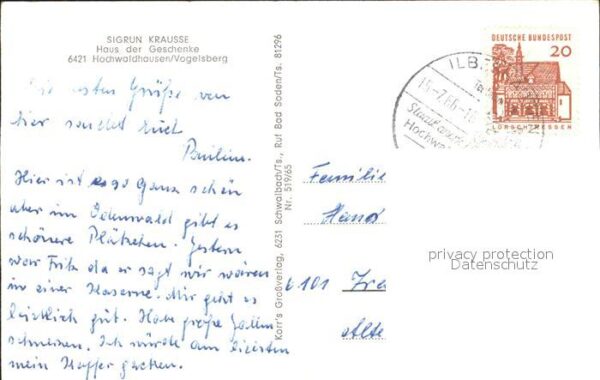 SIGRUN KRAUSSE
Haus der Geschenke
6421 Hochwaldhausen/Vogelsberg
Die ersten Grüße von
hier sendet Euch
Pauline.
Hier ist es so ganz schön
aber im Odenwald gibt es
schönere Plätzchen. Gestern
war Fritz da er sagt wir wären
in einer Kaserne. Mir geht es
leidlich gut. Habe große
schmerzen. Ich würde am liebsten
mein Koffer packen.
Karr's Großverlag, 6231 Schwalbach/Ts., Ruf Bad Soden/Ts. 81296
Nr. 519/65
DEUTSCHE BUNDESPOST
20
LORSCH/HESSEN
ILB
15.-7.66-
Hochwa
Familie
6101
Alte
privacy protection
Datenschutz